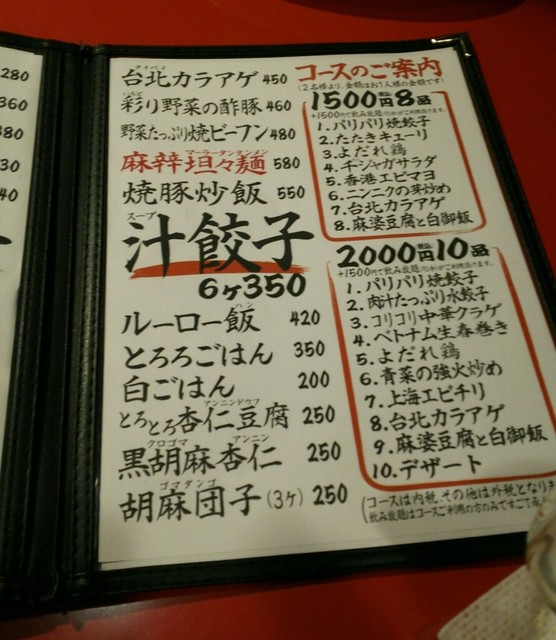 280
360
380
30
40
タイペイ
台北カラアゲ 450
彩り野菜の酢豚 460
野菜たっぷり焼ビーフン 480
マーラータンタンメン
麻辣坦々麺 580
焼豚炒飯 550
スープ
汁餃子
6ヶ350
ハン
ルーロー飯 420
とろろごはん 350
白ごはん 200
アンニンドウフ
とろとろ杏仁豆腐 250
クロゴマ アンニン
黒胡麻杏仁 250
ゴマダンゴ
胡麻団子(3ヶ) 250
コースのご案内
(2名様より、金額はお1人様の金額です)
1500円8品
+1500円で飲み放題
1. パリパリ焼餃子
2. たたきキューリ
3. よだれ鶏
4. チャンジャサラダ
5. 香港エビマヨ
6. ニンニクの芽炒め
7. 台北カラアゲ
8. 麻婆豆腐と白御飯
2000円10品
+1500円で飲み放題
1. パリパリ焼餃子
2. 肉汁たっぷり水餃子
3. コリコリ中華クラゲ
4. ベトナム生春巻き
5. よだれ鶏
6. 青菜の強火炒め
7. 上海エビチリ
8. 台北カラアゲ
9. 麻婆豆腐と白御飯
10. デザート
(コースは内税、その他は外税となりま
飲み放題はコースご利用の方のみですご了承